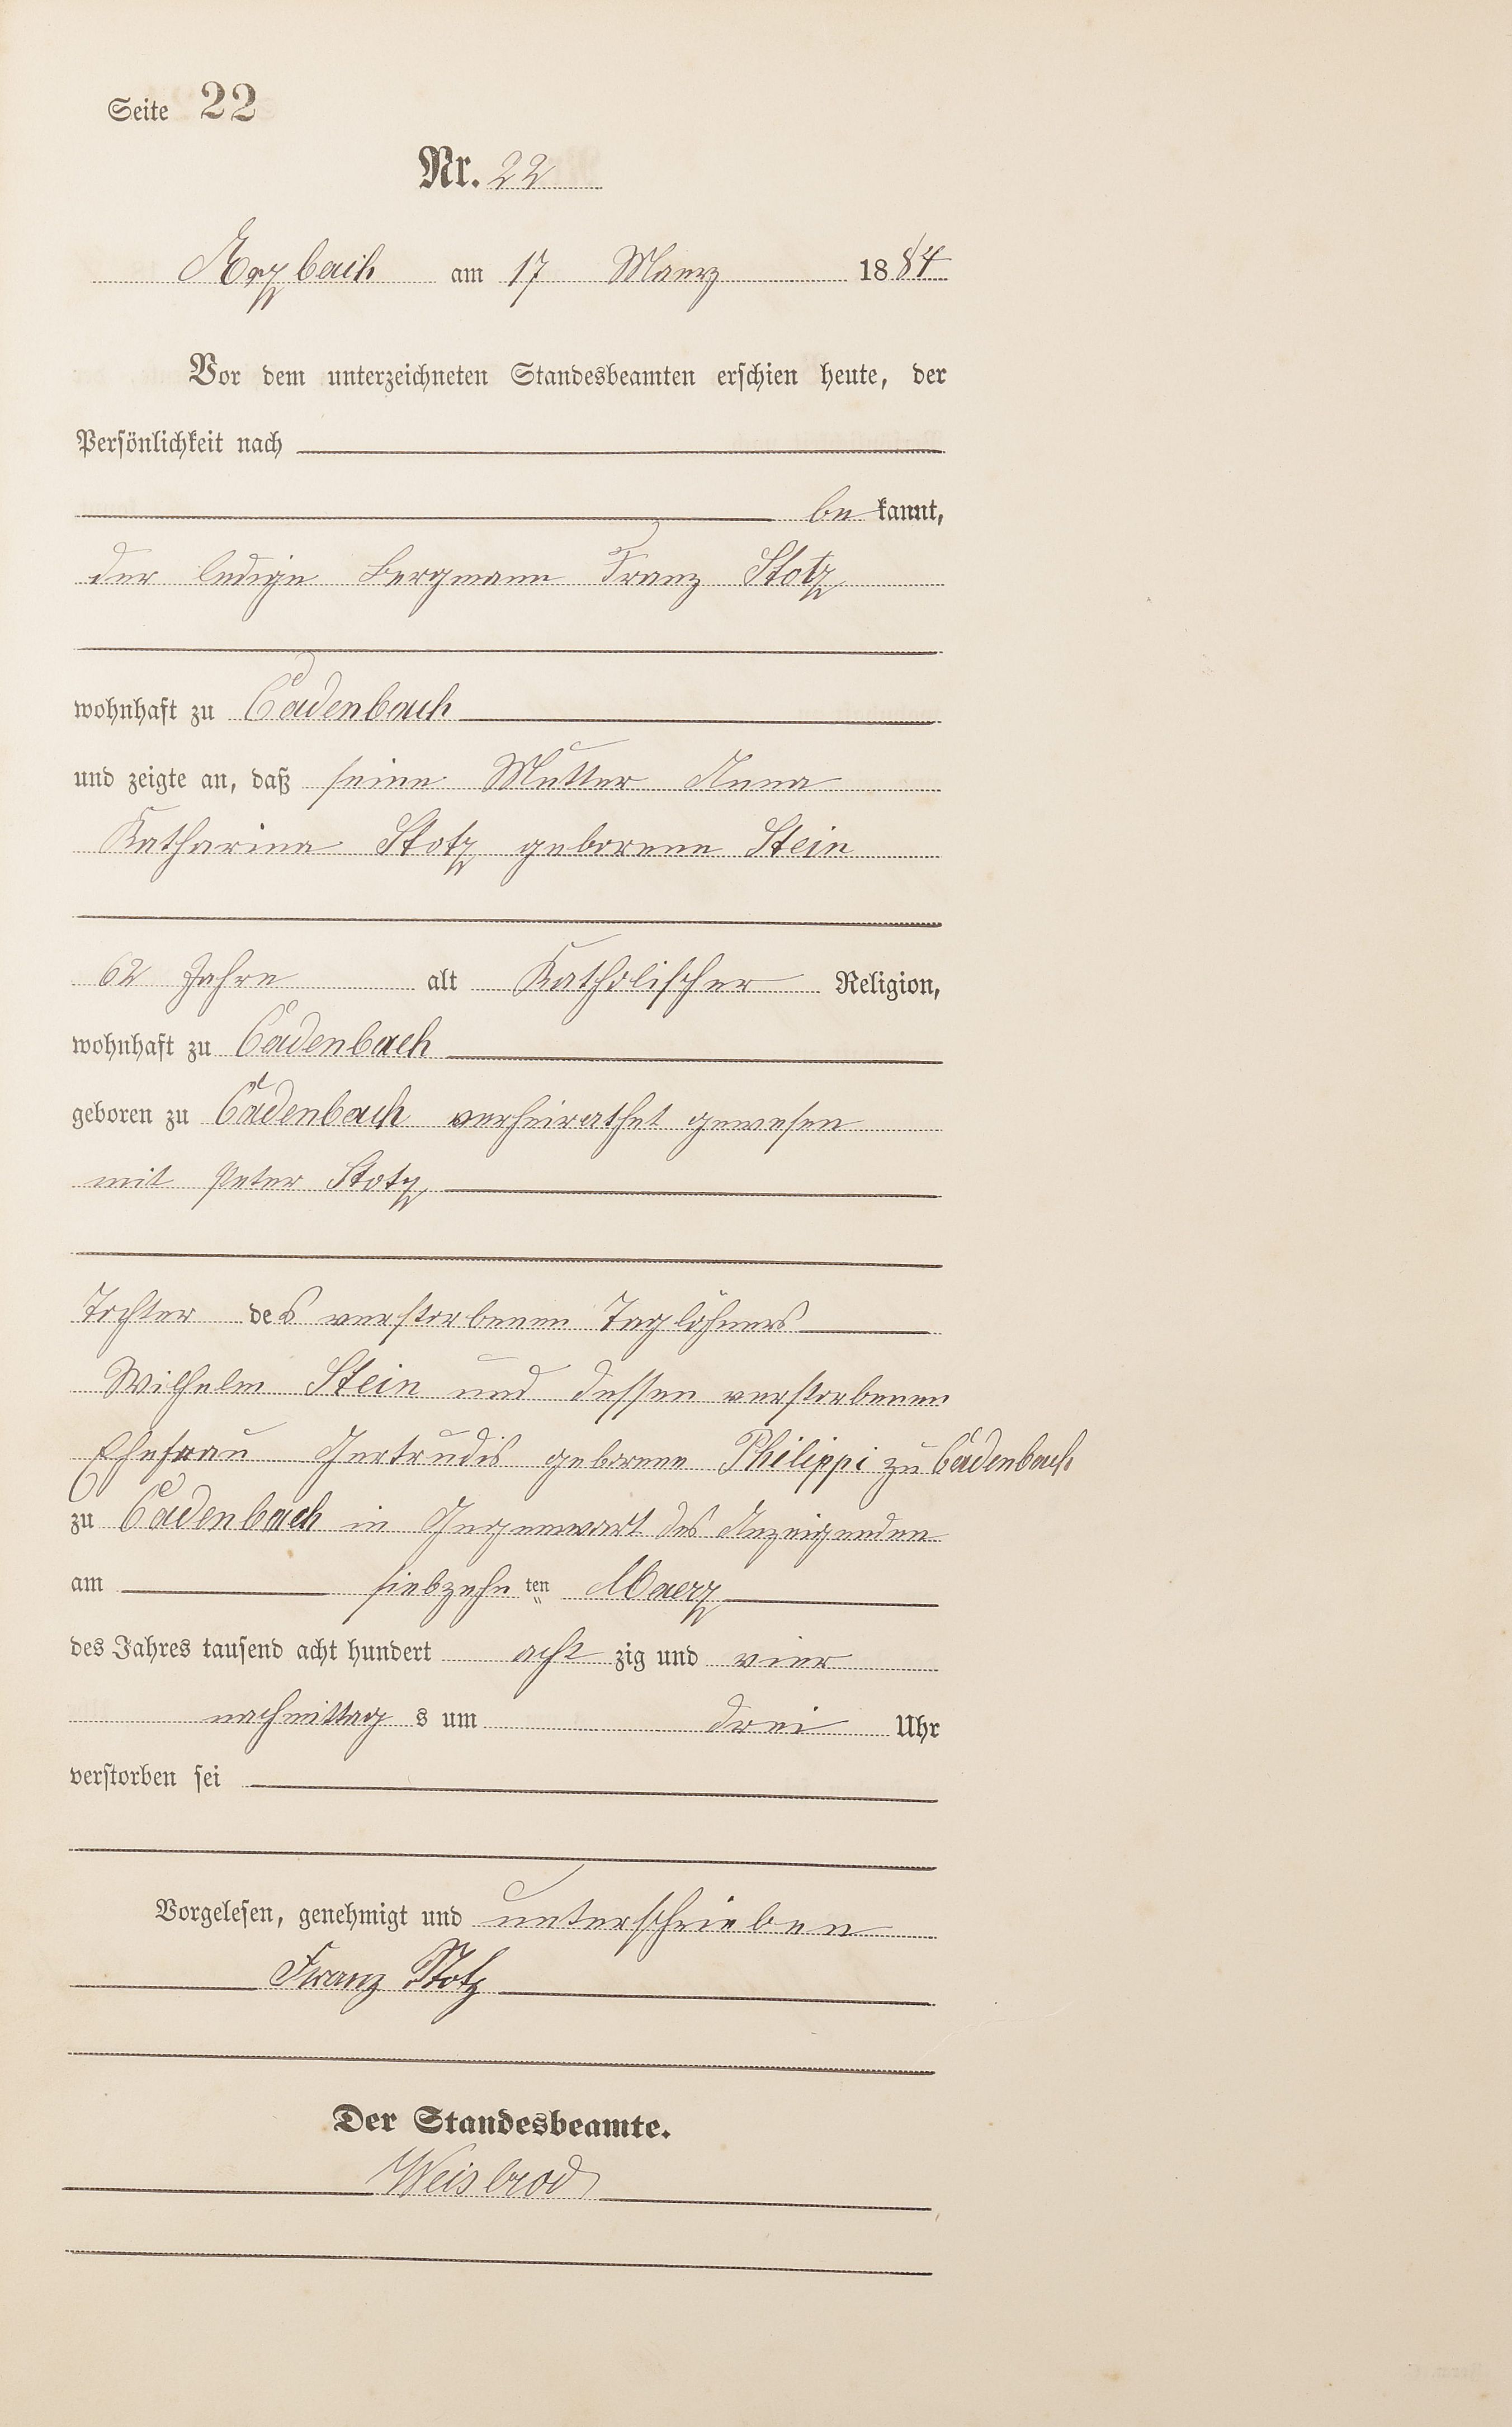 Seite 22
Nr. 22
Arzbach am 17 Maerz 1884
Vor dem unterzeichneten Standesbeamten erschien heute, der
Persönlichkeit nach
be kannt,
der ledige Bergmann Franz Stotz
wohnhaft zu Cadenbach
und zeigte an, daß seine Mutter Anna
Katharina Stotz geborene Stein
62 Jahre alt Katholischer Religion,
wohnhaft zu Cadenbach
geboren zu Cadenbach verheirathet gewesen
mit Peter Stotz
Tochter des verstorbenen Taglöhners
Wilhelm Stein und dessen verstorbenen
Ehefrau Gertrudis geborene Philippi zu Cadenbach
zu Cadenbach in Gegenwart des Anzeigenden
am siebzehn ten Maerz
des Jahres tausend acht hundert acht zig und vier
nachmittag s um drei Uhr
verstorben sei
Vorgelesen, genehmigt und unterschrieben
Franz Stotz
Der Standesbeamte.
Weisbrod